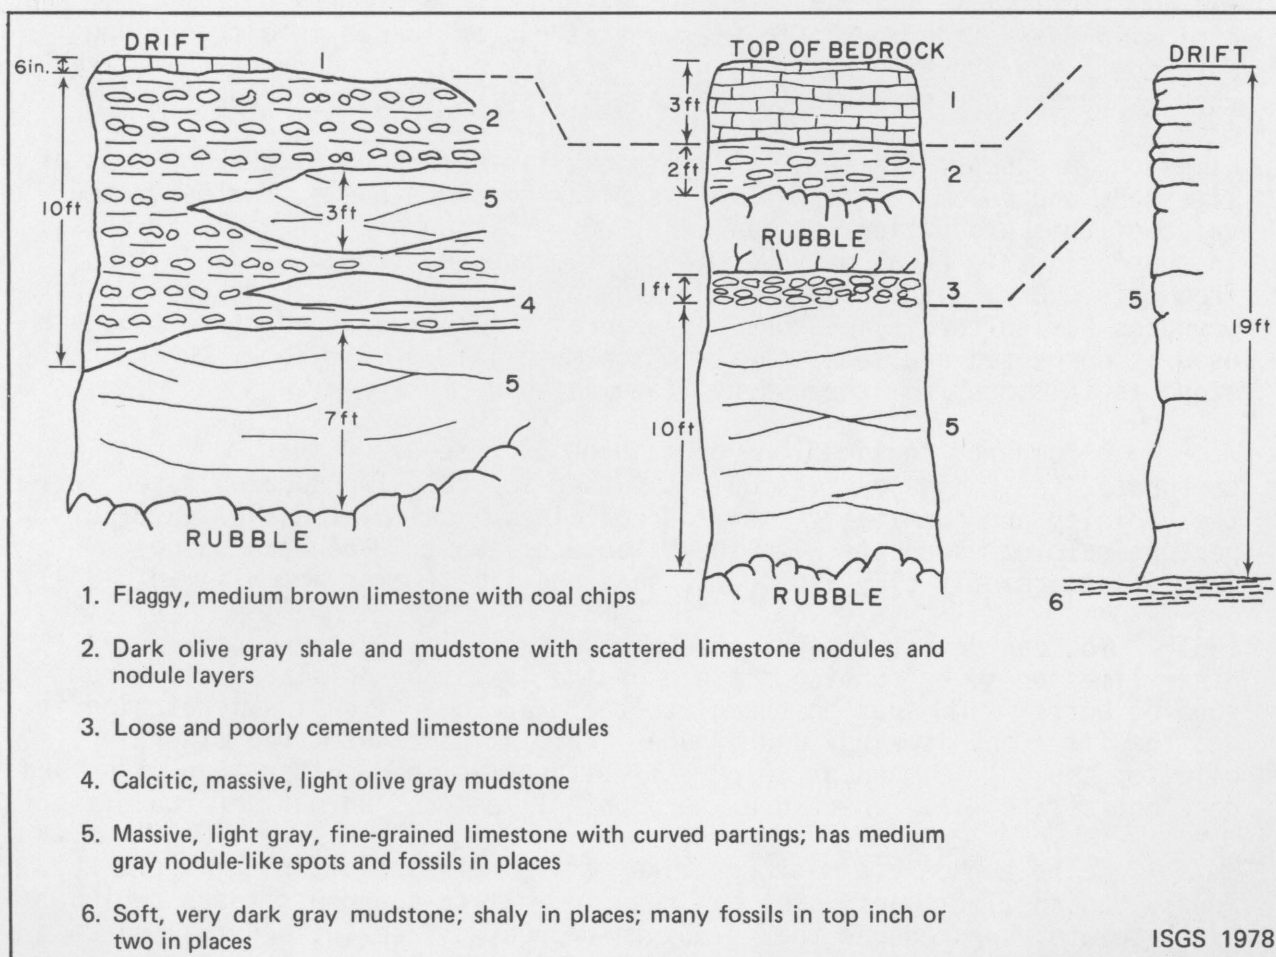 DRIFT
6in.
1
2
10ft
5
3ft
4
5
7ft
RUBBLE
TOP OF BEDROCK
3ft
1
2ft
2
RUBBLE
1ft
3
10ft
5
RUBBLE
DRIFT
5
19ft
6
1. Flaggy, medium brown limestone with coal chips
2. Dark olive gray shale and mudstone with scattered limestone nodules and
nodule layers
3. Loose and poorly cemented limestone nodules
4. Calcitic, massive, light olive gray mudstone
5. Massive, light gray, fine-grained limestone with curved partings; has medium
gray nodule-like spots and fossils in places
6. Soft, very dark gray mudstone; shaly in places; many fossils in top inch or
two in places
ISGS 1978